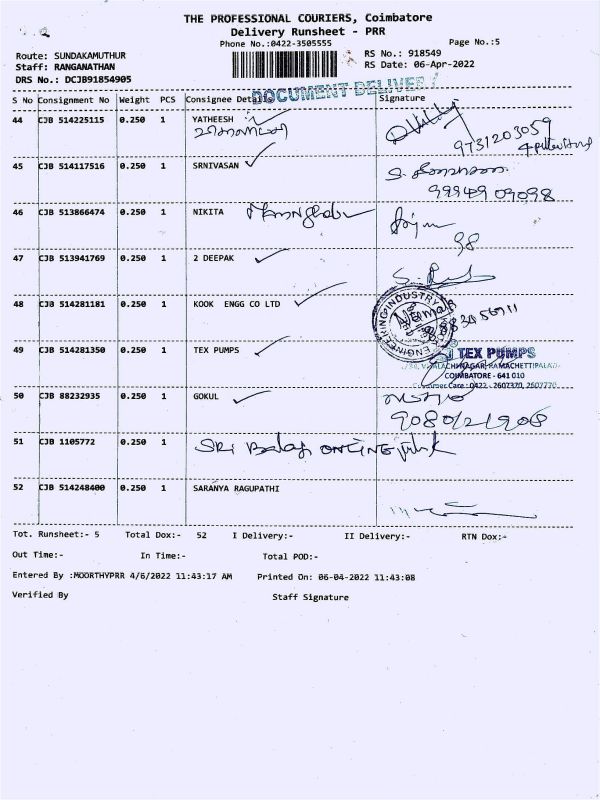 THE PROFESSIONAL COURIERS, Coimbatore
Delivery Runsheet - PRR
Phone No.:0422-3505555
Page No.:5
Route: SUNDAKAMUTHUR
RS No.: 918549
Staff: RANGANATHAN
RS Date: 06-Apr-2022
DRS No.: DCJB91854905
DOCUMENT DELIVERY
S No Consignment No Weight PCS Consignee Details Signature
44 CJB 514225115 0.250 1 YATHEESH
9731203059
45 CJB 514117516 0.250 1 SRNIVASAN
99949 09098
46 CJB 513866474 0.250 1 NIKITA
98
47 CJB 513941769 0.250 1 2 DEEPAK
48 CJB 514281181 0.250 1 KOOK ENGG CO LTD
ENGINEERING INDUSTRY
49 CJB 514281350 0.250 1 TEX PUMPS
TEX PUMPS
COIMBATORE - 641 010
Customer Care : 0422 - 2607370, 2607770
50 CJB 88232935 0.250 1 GOKUL
51 CJB 1105772 0.250 1 SRI Balaji ONLINE
52 CJB 514248400 0.250 1 SARANYA RAGUPATHI
Tot. Runsheet:- 5 Total Dox:- 52 I Delivery:- II Delivery:- RTN Dox:-
Out Time:- In Time:- Total POD:-
Entered By :MOORTHYPRR 4/6/2022 11:43:17 AM Printed On: 06-04-2022 11:43:08
Verified By Staff Signature